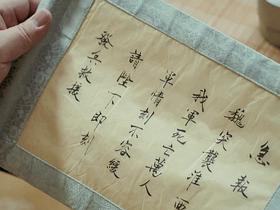 急報
魏突襲淮西
我軍死亡萬人
軍情刻不容緩
請陛下即刻
發兵救援